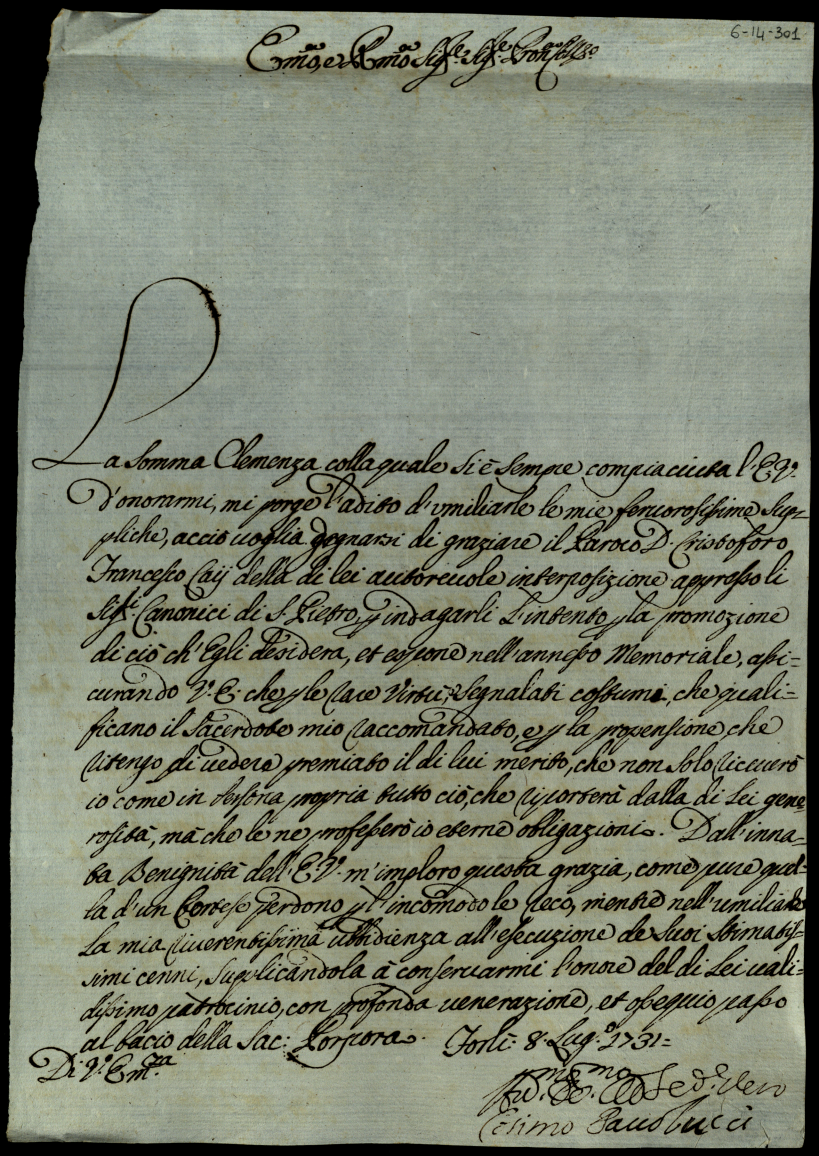 6-14-301
Em̃o, e Rm̃o Sig.re Sig.re
La somma Clemenza colla quale si è sempre compiaciuta l'E. V.
d'onorarmi, mi porge l'adito d'vmiliarle le mie feruorosissime sup-
pliche, acciò uoglia degnarsi di graziare il Paroco D. Cristoforo
Francesco Caij della di lei autoreuole interposizione appresso li
Sig.ri Canonici di S. Pietro, p indagarli l'intento p la promozione
di ciò ch'Egli desidera, et espone nell'annesso Memoriale, assi-
curando V. E. che p le rare Virtù, e segnalati costumi, che quali-
ficano il Sacerdote mio raccomandato, e p la propensione, che
ritengo di uedere premiato il di lui merito, che non solo riceuerò
io come in persona propria tutto ciò, che riporterà dalla di Lei gene-
rosità, mà che le ne professerò io eterne obligazioni. Dall'inna-
ta Benignità dell'E. V. m'imploro questa grazia, come pure quel-
la d'un Cortese perdono p l'incõmodo le reco, mentre nell'umiliare
la mia riuerentissima ubbidienza all'esecuzione de Suoi stimatis-
simi cenni, supplicandola à conseruarmi l'onore del di Lei uali-
dissimo patrocinio, con profonda uenerazione, et ossequio passo
al bacio della Sac: Porpora. Forlì 8 Lug.o 1731=
Di V. Em.za
Cosimo Paulucci